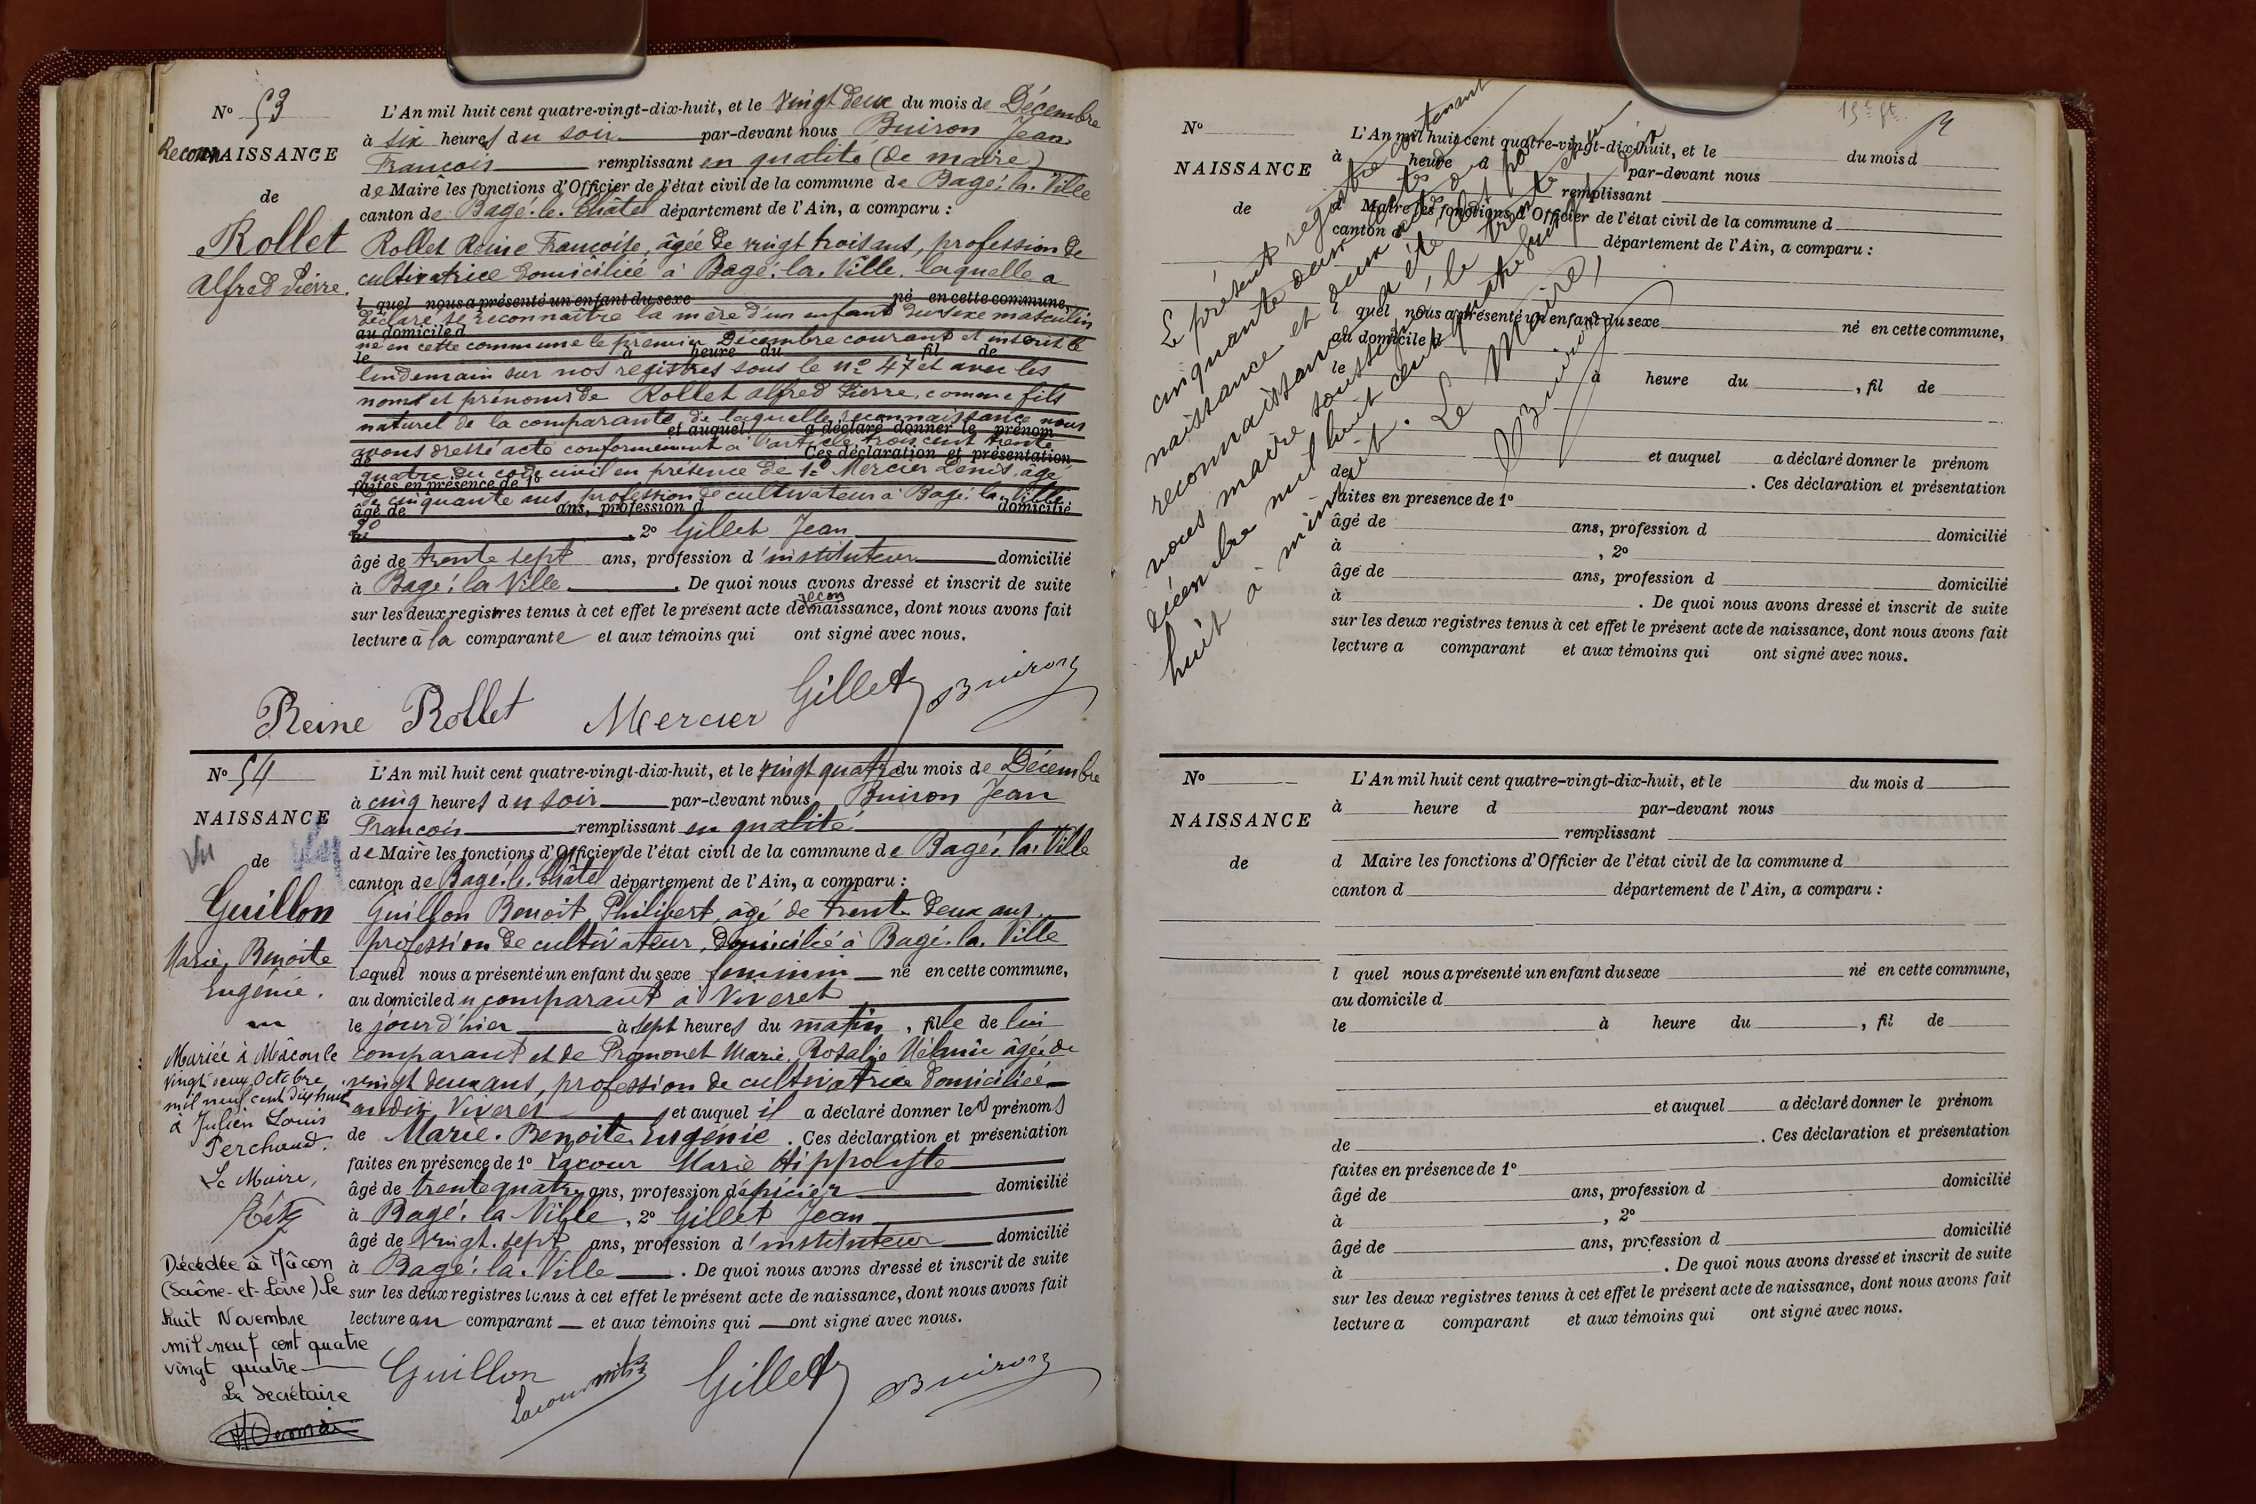 N° 53
Reconn NAISSANCE
de
Rollet
Alfred Pierre.
L'An mil huit cent quatre-vingt-dix-huit, et le vingt deux du mois de Décembre
à six heures du soir par-devant nous Buiron Jean
François remplissant en qualité (de maire)
de Maire les fonctions d'Officier de l'état civil de la commune de Bagé-la-Ville
canton de Bagé-le-Châtel département de l'Ain, a comparu :
Rollet Reine Françoise, âgée de vingt trois ans, profession de
cultivatrice domiciliée à Bagé-la-Ville, laquelle a
l quel nous a présenté un enfant du sexe né en cette commune,
déclaré se reconnaître la mère d'un enfant du sexe masculin
au domicile d
né en cette commune le premier Décembre courant et inscrit le
le à heure du fil de
lendemain sur nos registres sous le n° 47 et avec les
noms et prénoms de Rollet Alfred Pierre, comme fils
naturel de la comparante, de laquelle reconnaissance nous
et auquel a déclaré donner le prénom
avons dressé acte conformément à l'article trois cent trente
de Ces déclaration et présentation
quatre du code civil en présence de 1° Mercier Denis âgé
faites en présence de 1°
de cinquante ans, profession de cultivateur à Bagé-la-Ville.
âgé de ans, profession d domicilié
à , 2° Gillet Jean
âgé de trente sept ans, profession d'instituteur domicilié
à Bagé-la-Ville . De quoi nous avons dressé et inscrit de suite
recon
sur les deux registres tenus à cet effet le présent acte de naissance, dont nous avons fait
lecture à la comparante et aux témoins qui ont signé avec nous.
Reine Rollet Mercier Gillet Buiron
N° 54
NAISSANCE
Vu
de
Guillon
Marie, Benoîte
Eugénie.
Mariée à Mâcon le
vingt deux Octobre
mil neuf cent dix huit
à Julien Louis
Perchaud.
Le Maire,
Décédée à Mâcon
(Saône-et-Loire) le
huit Novembre
mil neuf cent quatre
vingt quatre
La Secrétaire
L'An mil huit cent quatre-vingt-dix-huit, et le vingt quatre du mois de Décembre
à cinq heures du soir par-devant nous Buiron Jean
François remplissant en qualité
de Maire les fonctions d'Officier de l'état civil de la commune de Bagé-la-Ville
canton de Bagé-le-Châtel département de l'Ain, a comparu :
Guillon Benoit Philibert, âgé de trente deux ans,
profession de cultivateur, domicilié à Bagé-la-Ville
lequel nous a présenté un enfant du sexe féminin né en cette commune,
au domicile du comparant à Viveret
le jour d'hier à sept heures du matin , fille de lui
comparant et de Promonet Marie, Rosalie Mélanie âgée de
vingt deux ans, profession de cultivatrice domiciliée
audit Viveret et auquel il a déclaré donner les prénoms
de Marie-Benoîte Eugénie . Ces déclaration et présentation
faites en présence de 1° Lacour Marie Hippolyte
âgé de trente quatre ans, profession d'épicier domicilié
à Bagé-la-Ville , 2° Gillet Jean
âgé de vingt-sept ans, profession d'instituteur domicilié
à Bagé-la-Ville . De quoi nous avons dressé et inscrit de suite
sur les deux registres tenus à cet effet le présent acte de naissance, dont nous avons fait
lecture au comparant et aux témoins qui ont signé avec nous.
Guillon Lacour Gillet Buiron
N°
NAISSANCE
de
L'An mil huit cent quatre-vingt-dix-huit, et le du mois d
à heure d par-devant nous
remplissant
d Maire les fonctions d'Officier de l'état civil de la commune d
canton d département de l'Ain, a comparu :
l quel nous a présenté un enfant du sexe né en cette commune,
au domicile d
le à heure du , fil de
et auquel a déclaré donner le prénom
de . Ces déclaration et présentation
faites en présence de 1°
âgé de ans, profession d domicilié
à , 2°
âgé de ans, profession d domicilié
à . De quoi nous avons dressé et inscrit de suite
sur les deux registres tenus à cet effet le présent acte de naissance, dont nous avons fait
lecture a comparant et aux témoins qui ont signé avec nous.
Le présent registre contenant
cinquante deux actes de
naissance et deux actes de
reconnaissance a été clos par
nous maire soussigné, le trente et un
décembre mil huit cent quatre vingt dix
huit à minuit. Le Maire,
Buiron
N°
NAISSANCE
de
L'An mil huit cent quatre-vingt-dix-huit, et le du mois d
à heure d par-devant nous
remplissant
d Maire les fonctions d'Officier de l'état civil de la commune d
canton d département de l'Ain, a comparu :
l quel nous a présenté un enfant du sexe né en cette commune,
au domicile d
le à heure du , fil de
et auquel a déclaré donner le prénom
de . Ces déclaration et présentation
faites en présence de 1°
âgé de ans, profession d domicilié
à , 2°
âgé de ans, profession d domicilié
à . De quoi nous avons dressé et inscrit de suite
sur les deux registres tenus à cet effet le présent acte de naissance, dont nous avons fait
lecture a comparant et aux témoins qui ont signé avec nous.